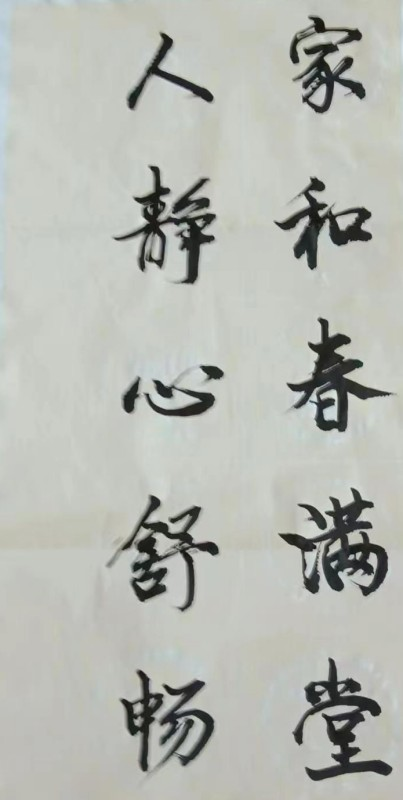 家和春满堂
人静心舒畅